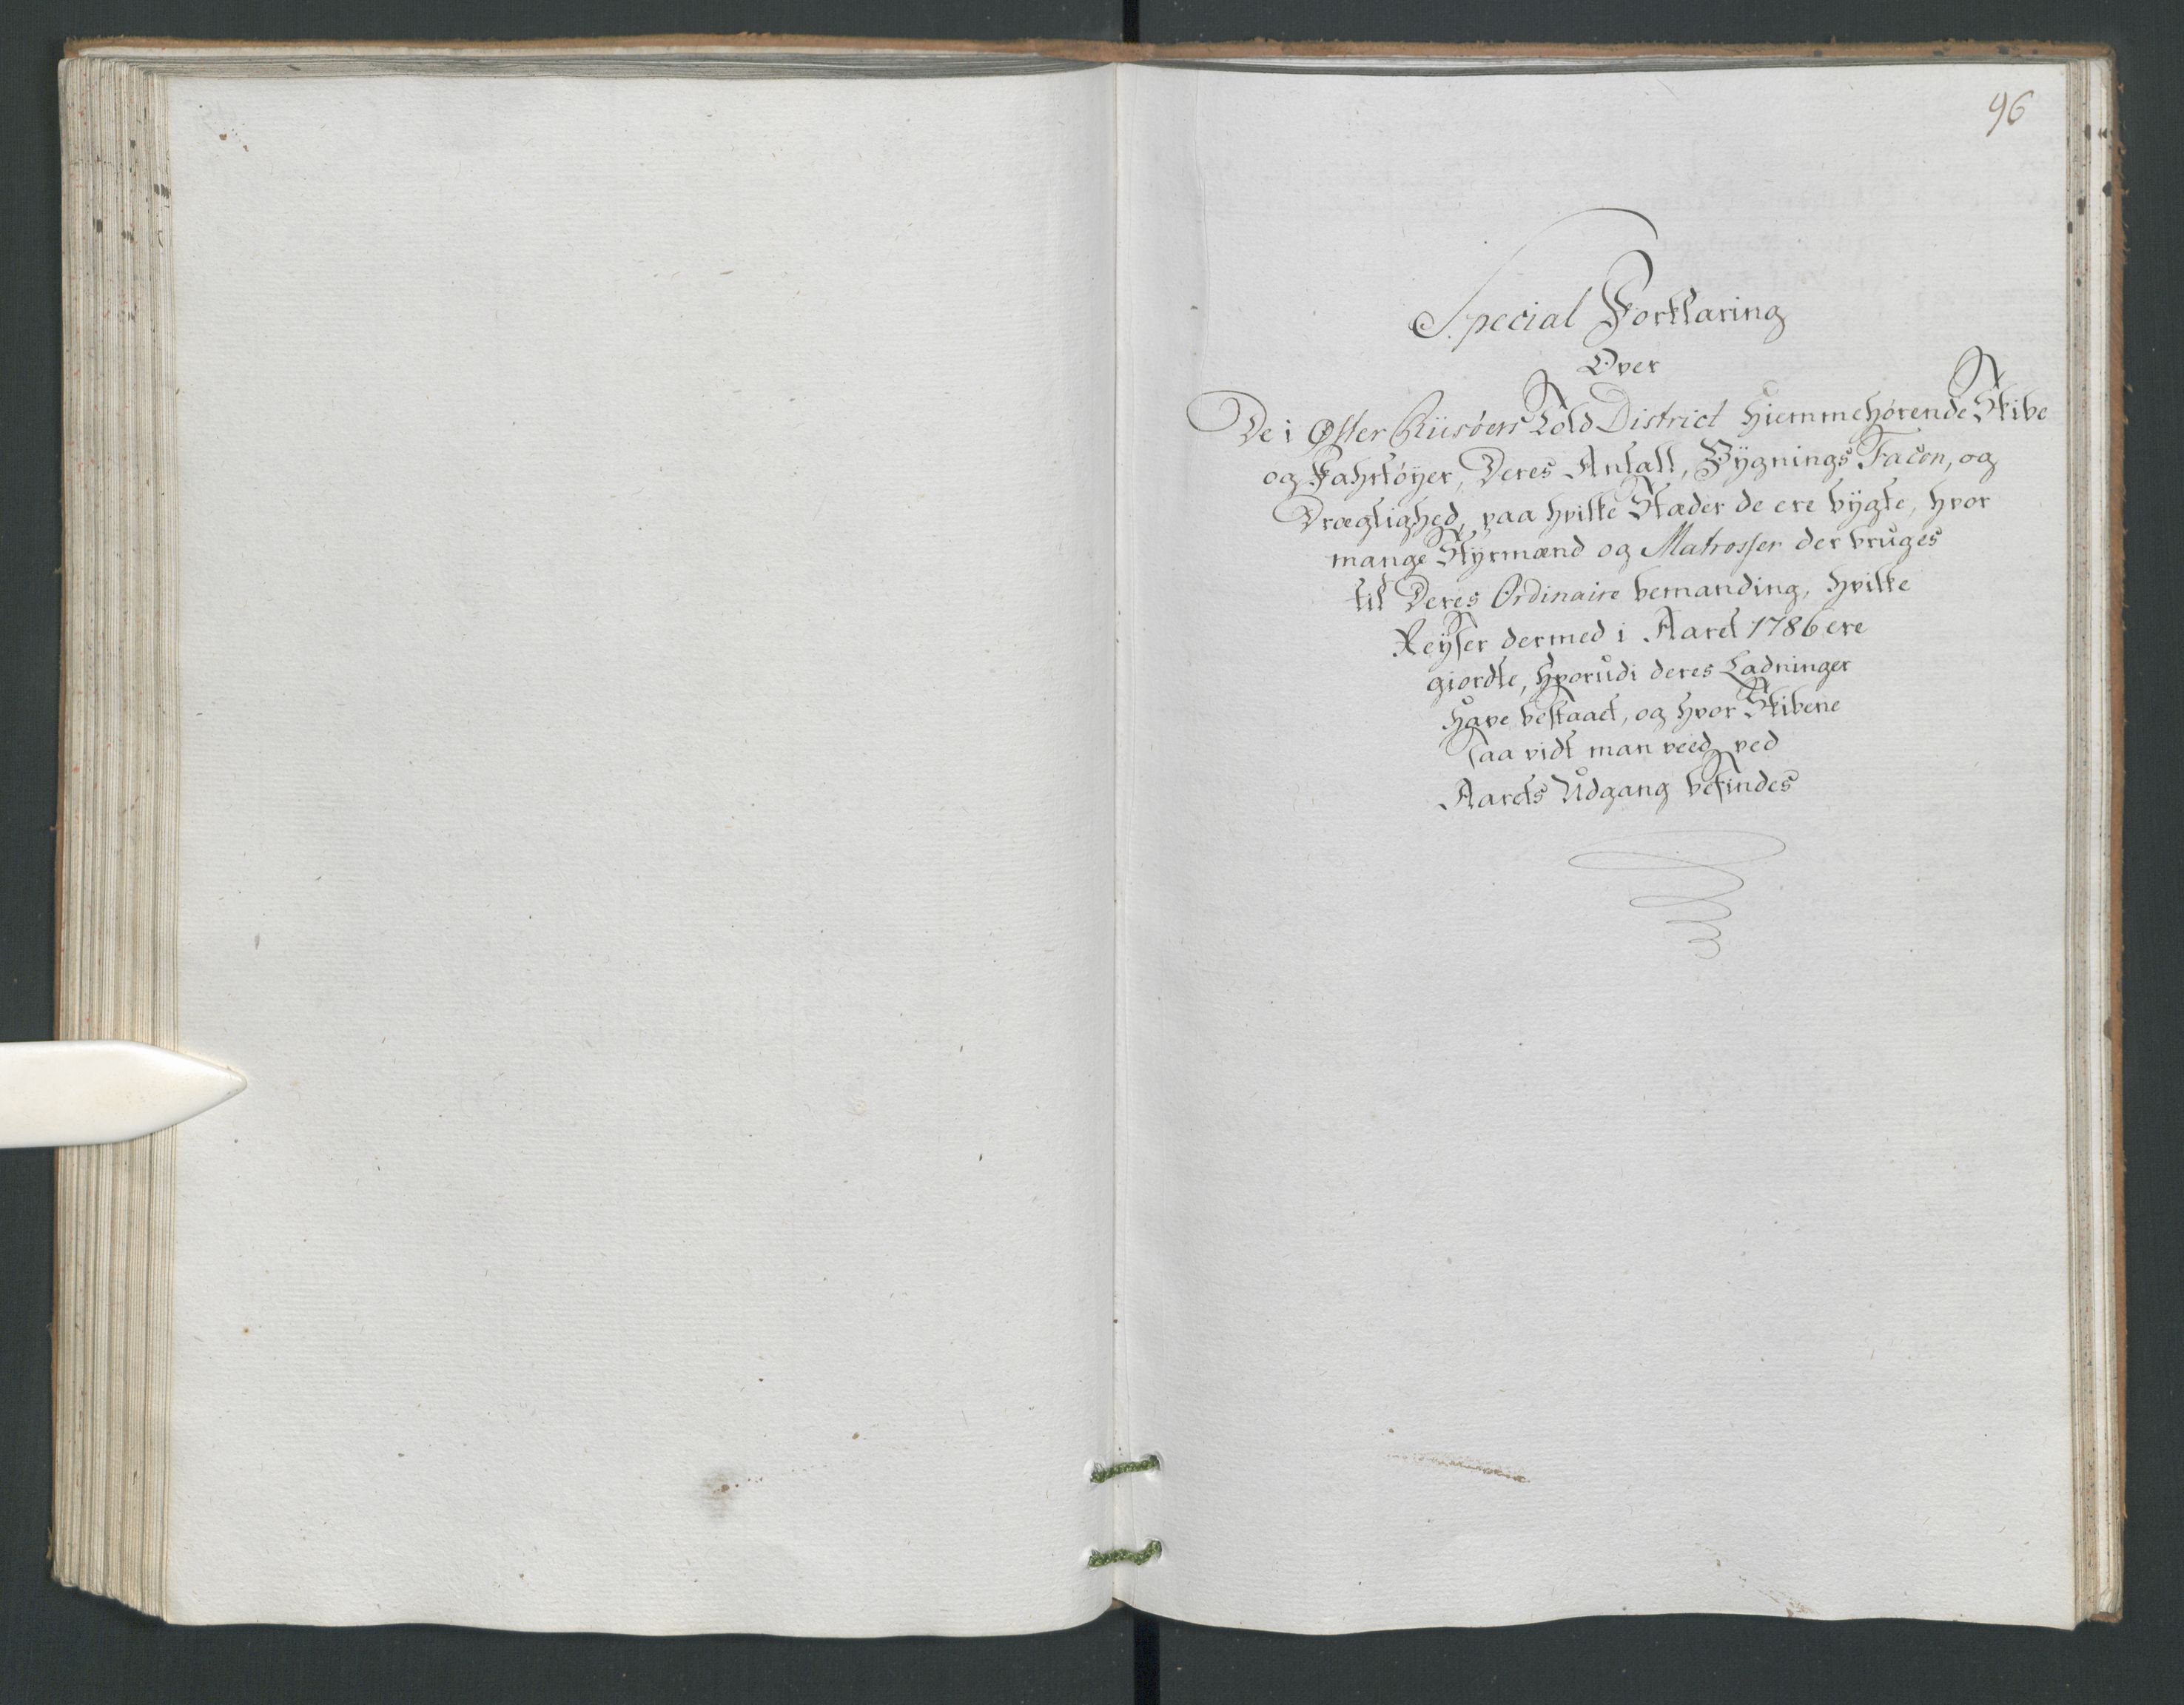 96
Special Forklaring
Over
De i Øster Riisöers Told District Hiemmehörende Skibe
og Fahrtöyer, Deres Antall, Bÿgnings Facon, og
Drægtighed, paa hvilke Stæder de ere bÿgte, hvor
mange Stÿrmænd og Matrosser der bruges
til Deres Ordinaire bemanding, hvilke
Reÿser dermed i Aaret 1786 ere
giordte, hvorudi deres Ladninger
Have bestaaet, og hvor Skibene
saa vidt man veed ved
Aarets Udgang befindes